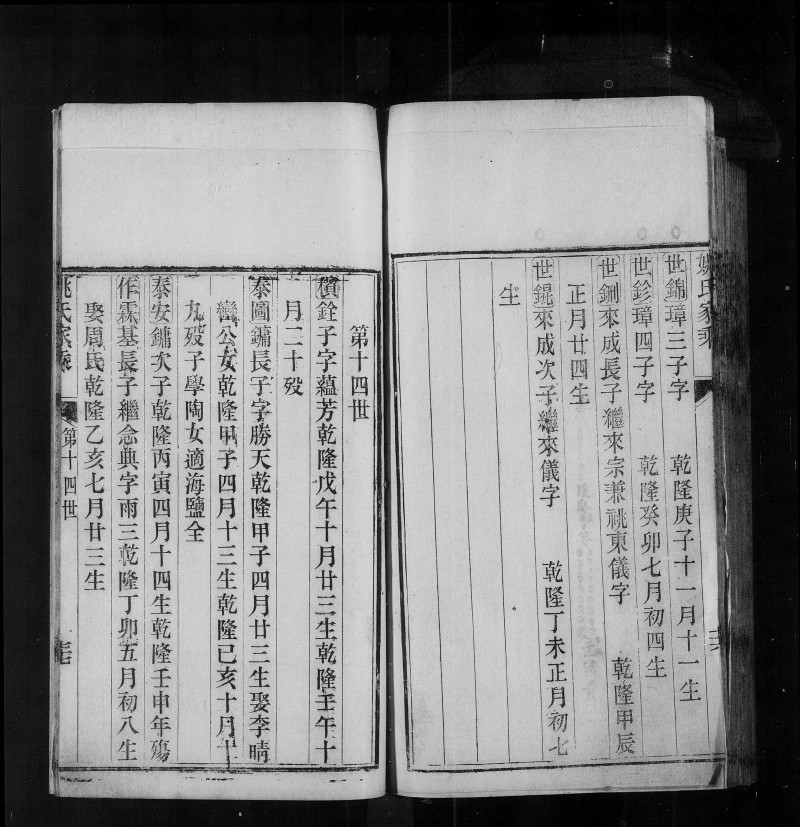 姚氏家乘
世錦璋三子字 乾隆庚子十一月十一生
世鉁璋四子字 乾隆癸卯七月初四生
世鍘來成長子繼來宗兼祧東儀字 乾隆甲辰
正月廿四生
世錕來成次子繼來儀字 乾隆丁未正月初七
生
第十四世
銓子字蘊芳乾隆戊午十月廿三生乾隆壬午十
月二十歿
泰圖鏞長子字勝天乾隆甲子四月廿三生娶李晴
巒公女乾隆甲子四月十三生乾隆已亥十月十
九歿子學陶女適海鹽全
泰安鏞次子乾隆丙寅四月十四生乾隆壬申年殤
作霖基長子繼念典字雨三乾隆丁卯五月初八生
娶周氏乾隆乙亥七月廿三生
姚氏家乘 第十四世